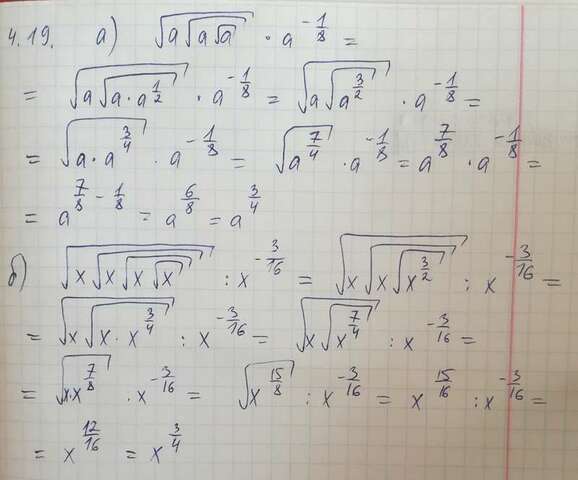 4.19. а) √(a√(a√a)) · a^(-1/8) =
= √(a√(a·a^(1/2))) · a^(-1/8) = √(a√(a^(3/2))) · a^(-1/8) =
= √(a·a^(3/4)) · a^(-1/8) = √(a^(7/4)) · a^(-1/8) = a^(7/8) · a^(-1/8) =
= a^(7/8 - 1/8) = a^(6/8) = a^(3/4)
б) √(x√(x√(x√x))) : x^(-3/16) = √(x√(x√(x^(3/2)))) : x^(-3/16) =
= √(x√(x·x^(3/4))) : x^(-3/16) = √(x√(x^(7/4))) : x^(-3/16) =
= √(x·x^(7/8)) · x^(-3/16) = √(x^(15/8)) : x^(-3/16) = x^(15/16) : x^(-3/16) =
= x^(12/16) = x^(3/4)